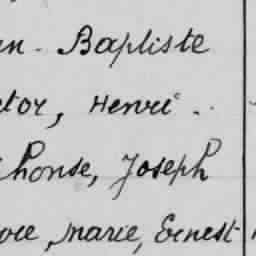 en. Baptiste
ctor, Henri.
phonse, Joseph
marie, Ernest